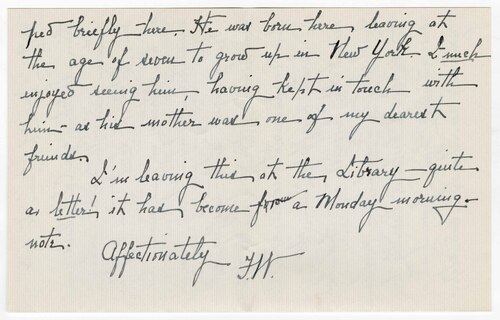 ped briefly here. He was born here leaving at
the age of seven to grow up in New York I much
enjoyed seeing him, having kept in touch with
him - as his mother was one of my dearest
friends.
I'm leaving this at the Library - quite
a letter! it has become from a Monday morning -
note.
Affectionately
F.W.